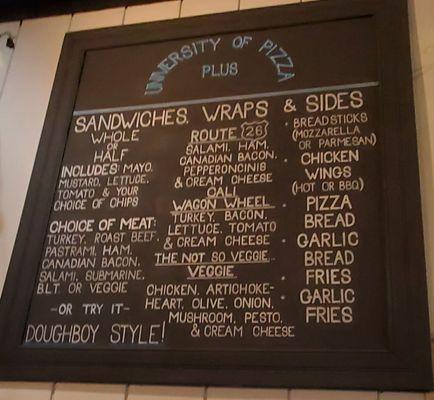 UNIVERSITY OF PIZZA
PLUS
SANDWICHES, WRAPS & SIDES
WHOLE
OR
HALF
INCLUDES: MAYO,
MUSTARD, LETTUCE,
TOMATO & YOUR
CHOICE OF CHIPS
CHOICE OF MEAT:
TURKEY, ROAST BEEF,
PASTRAMI, HAM,
CANADIAN BACON,
SALAMI, SUBMARINE,
B.L.T. OR VEGGIE
-OR TRY IT-
DOUGHBOY STYLE!
ROUTE 26
SALAMI, HAM,
CANADIAN BACON,
PEPPERONCINIS
& CREAM CHEESE
CALI
WAGON WHEEL
TURKEY, BACON,
LETTUCE, TOMATO
& CREAM CHEESE
THE NOT SO VEGGIE
VEGGIE
CHICKEN, ARTICHOKE-
HEART, OLIVE, ONION,
MUSHROOM, PESTO,
& CREAM CHEESE
BREADSTICKS
(MOZZARELLA
OR PARMESAN)
CHICKEN
WINGS
(HOT OR BBQ)
PIZZA
BREAD
GARLIC
BREAD
FRIES
GARLIC
FRIES